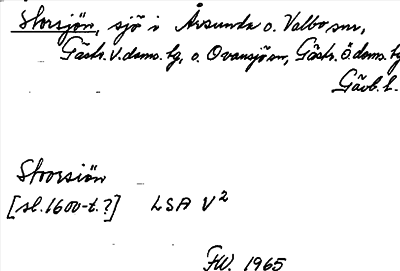 Storsjön, sjö i Årsunda o. Valbo snr,
Gästr. V. doms. hg, o. Ovansjö sn, Gästr. Ö. doms. hg
Gävb. l.
Storsiön
[sl. 1600-t.?] LSA V²
FW. 1965